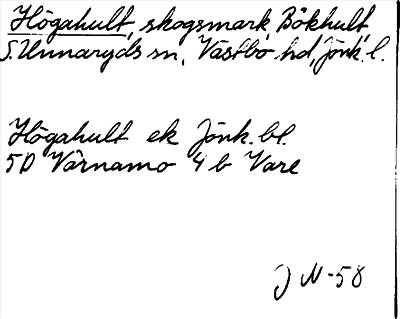 Högahult, skogsmark, Bökhult,
S. Unnaryds sn, Västbo hd, Jönk. l.
Högahult ek Jönk. bl.
5D Värnamo 4 b Vare
J N-58